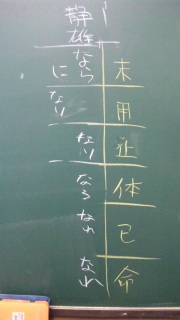 静雄
未 用 止 体 已 命
なら
に
なり
なり
なる
なれ
なれ